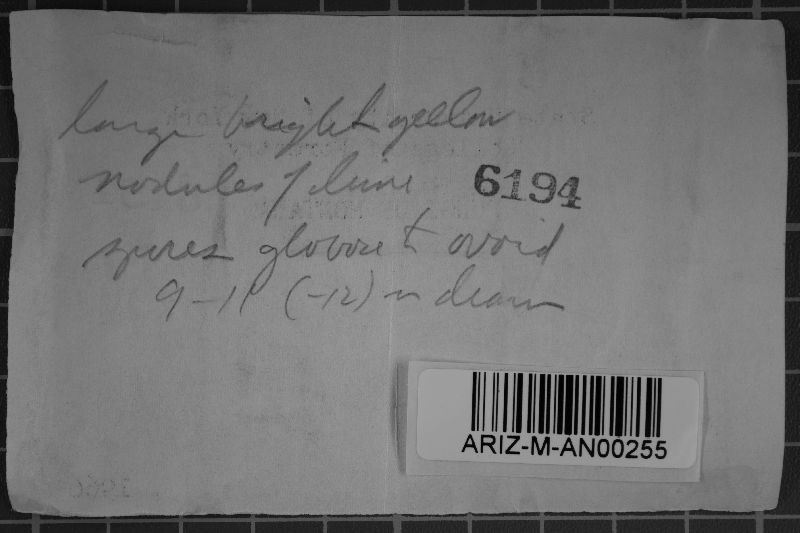 large bright yellow
nodules of lime 6194
spores globose to ovoid
9-11 (-12) in diam
ARIZ-M-AN00255